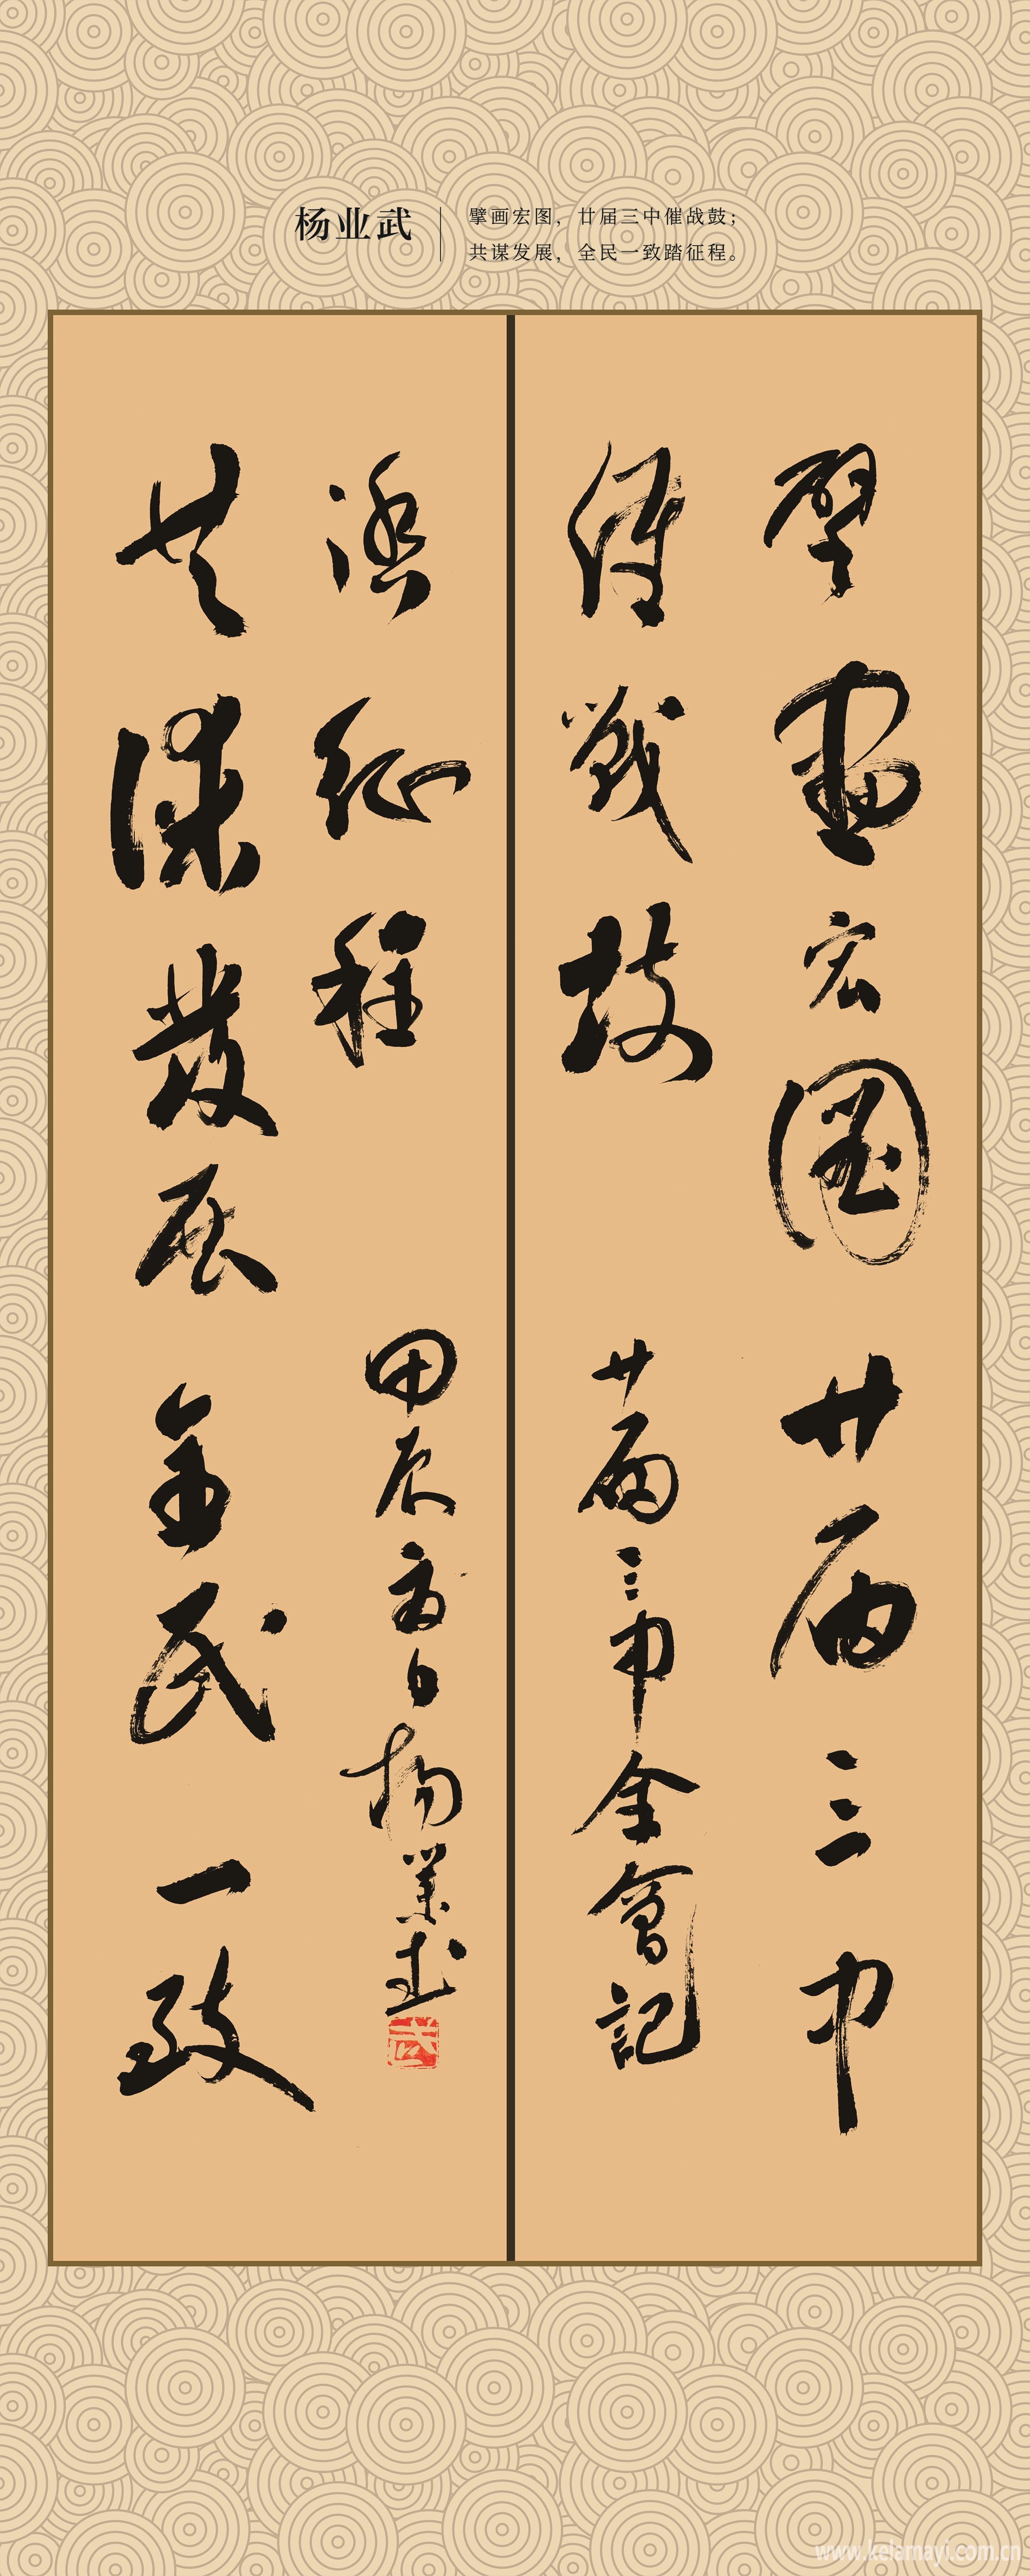 杨业武
擘画宏图，廿届三中催战鼓；
共谋发展，全民一致踏征程。
擘畫宏圖廿届三中
催戰鼓
廿届三中全會記
共謀發展全民一致
踏征程
甲辰夏日楊業武
武
www.kelamayi.com.cn